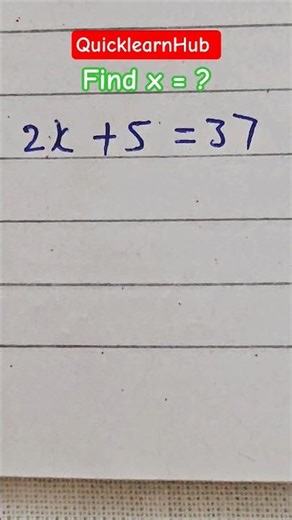 QuicklearnHub
Find x = ?
2x + 5 = 37